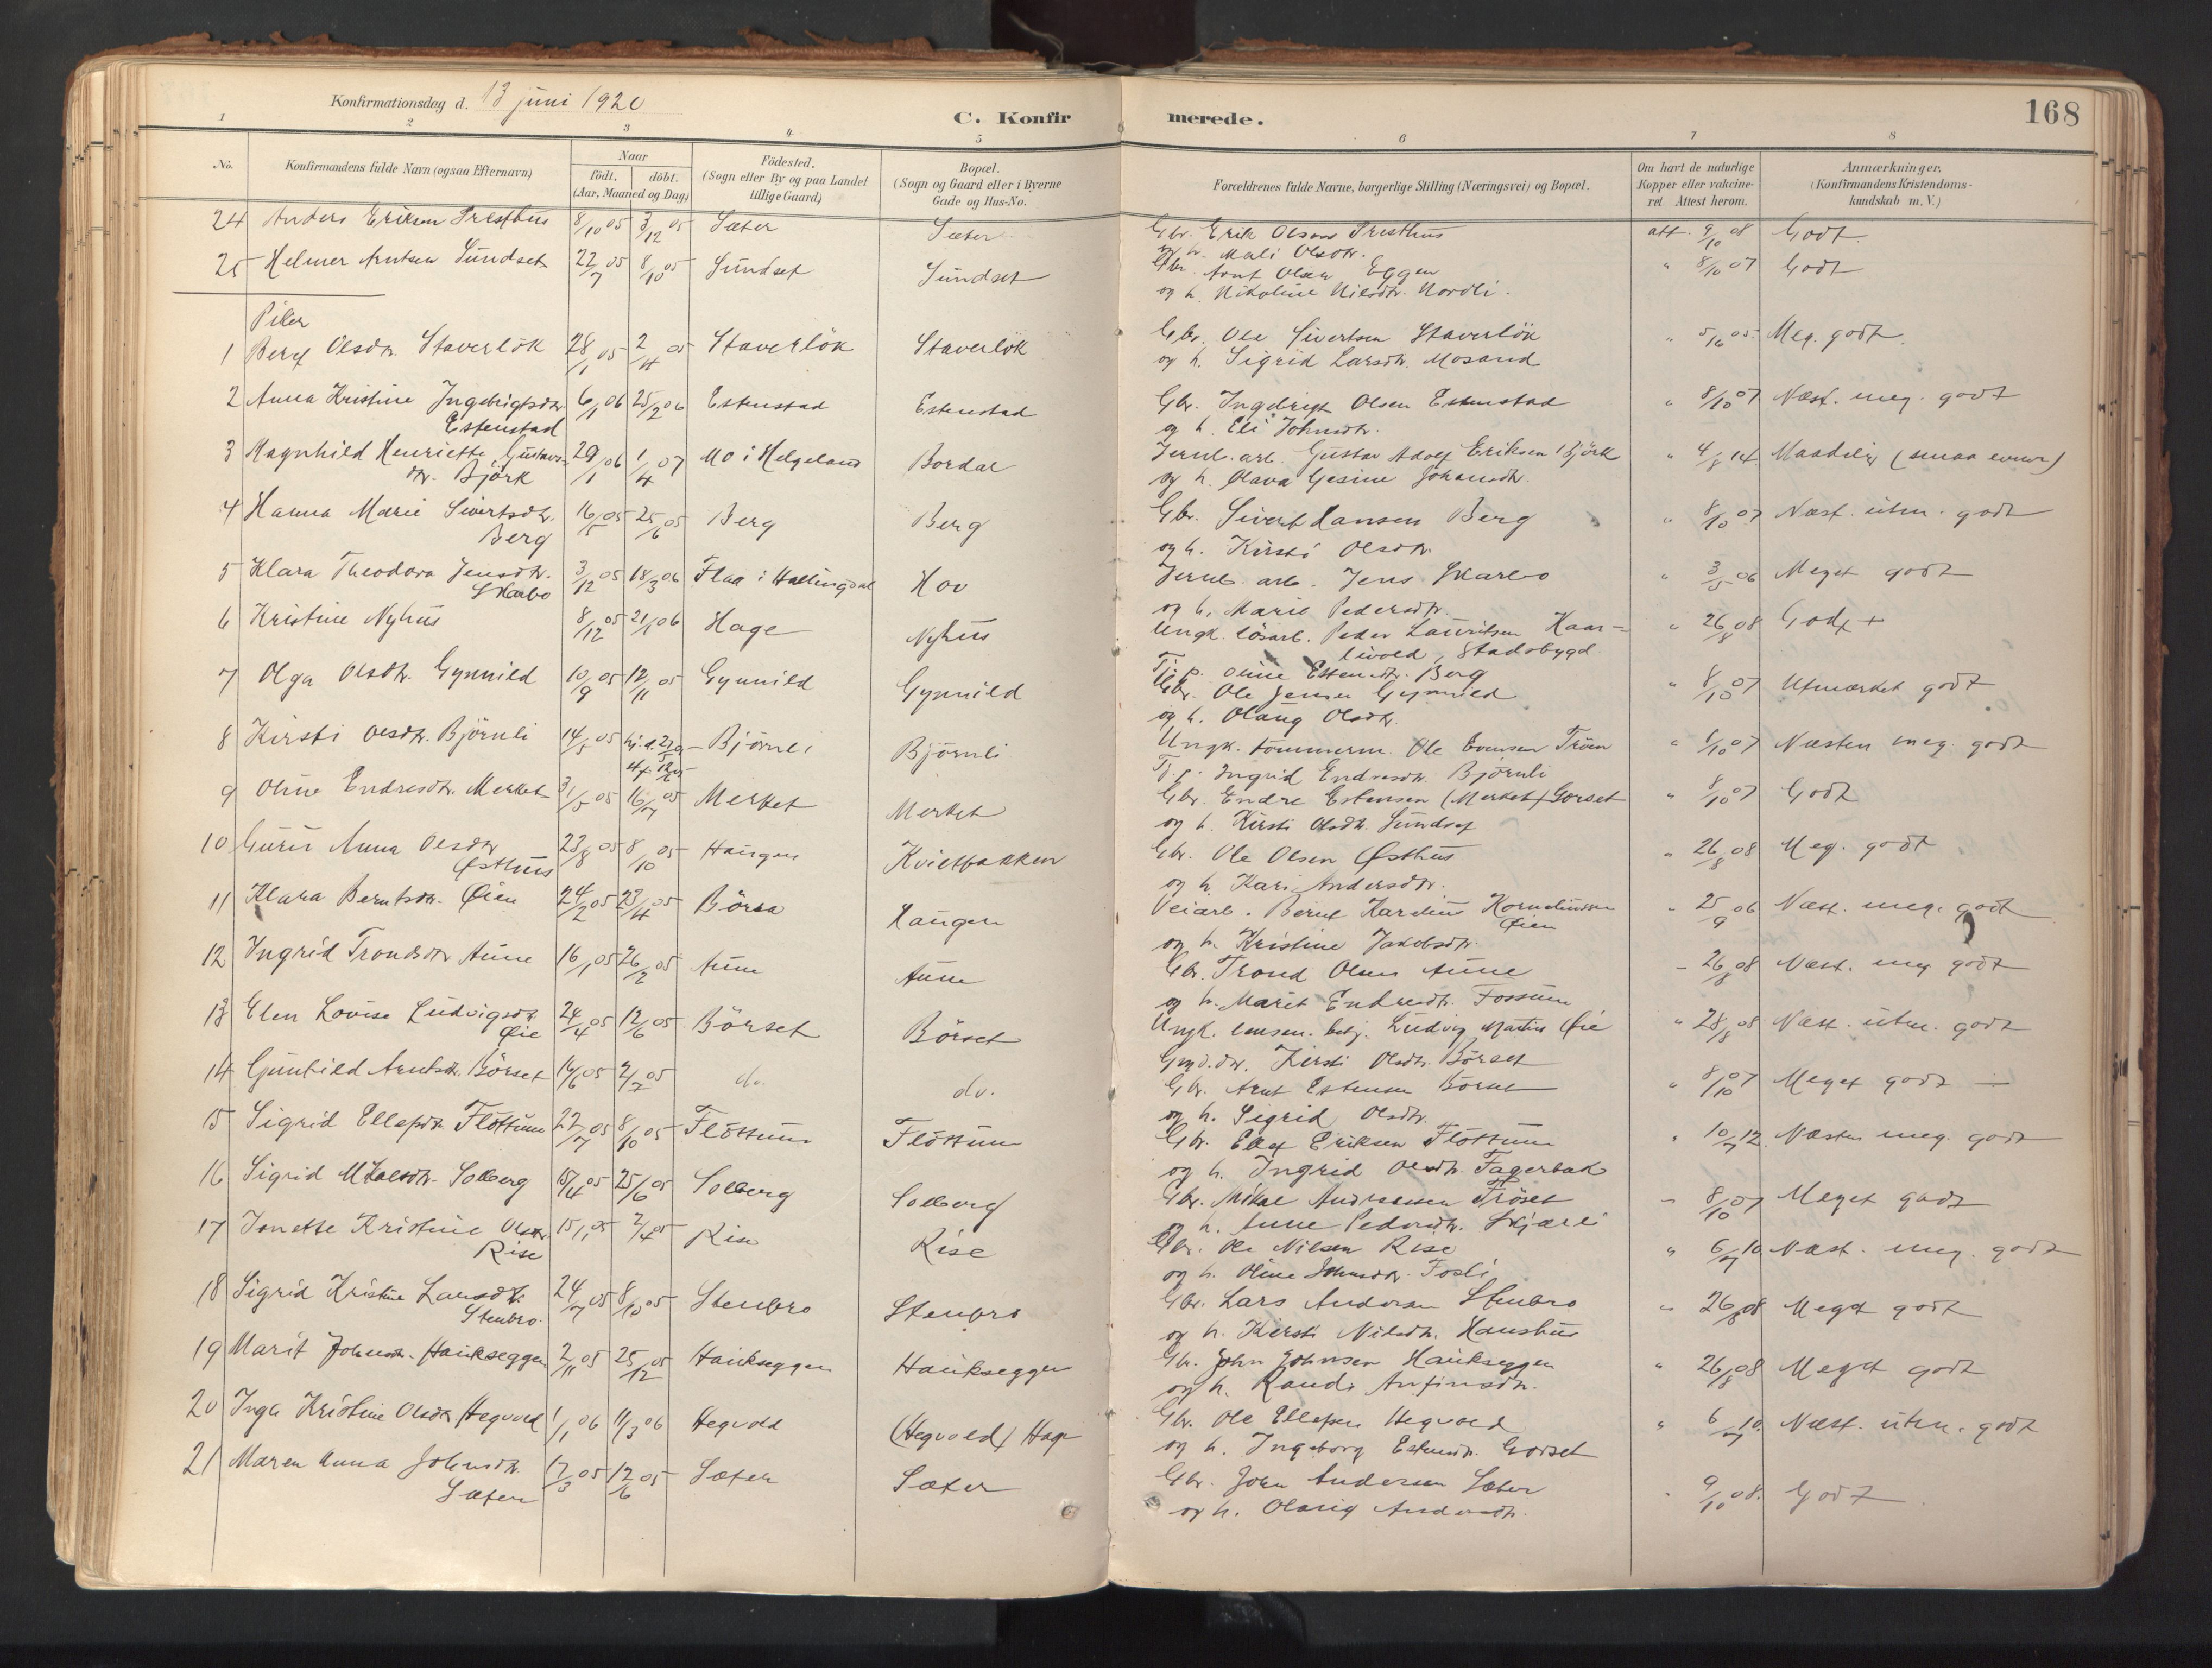 Konfirmationsdag d. 13 juni 1920
C. Konfirmerede.
168
1 2 3 4 5 6 7 8
No.
Konfirmandens fulde Navn (ogsaa Efternavn)
Naar
födt. döbt.
(Aar, Maaned og Dag)
Födested.
(Sogn eller By og paa Landet
tillige Gaard)
Bopæl.
(Sogn og Gaard eller i Byerne
Gade og Hus-No.
Forældrenes fulde Navne, borgerlige Stilling (Næringsvei) og Bopæl.
Om havt de naturlige
Kopper eller vakcine-
ret. Attest herom.
Anmærkninger.
(Konfirmandens Kristendoms-
kundskab m. V.)
24 Anders Eriksen Presthus 8/10 05 3/12 05 Sæter Sæter Gbr. Erik Olsen Presthus att. 9/10 08 Godt
og h. Mali Olsdtr.
25 Helmer Arntsen Sundset 22/7 05 8/10 05 Sundset Sundset Gbr. Arnt Olsen Eggen " 8/10 07 Godt
og h. Nikoline Nilsdtr. Nordli.
Piker
1 Berit Olsdtr. Staverlök 28/1 05 2/4 05 Staverlök Staverlök Gbr. Ole Sivertsen Staverlök " 5/6 05 Meg. godt
og h. Sigrid Larsdtr. Mosand
2 Anna Kristine Ingebrigtsdtr. 6/1 06 25/2 06 Estenstad Estenstad Gbr. Ingebrigt Olsen Estenstad " 8/10 07 Næst. meg. godt
Estenstad og h. Eli Johnsdtr.
3 Magnhild Henriette Gustavs- 29/1 06 1/4 07 Mo i Helgeland Bordal Jernb. arb. Gustav Adolf Eriksen Björk " 4/8 14 Maadelig (smaa evner)
dtr. Björk og h. Olava Gesine Johansdtr.
4 Hanna Marie Sivertsdtr. 16/5 05 25/6 05 Berg Berg Gbr. Sivert Hansen Berg " 8/10 07 Næst. utm. godt
Berg og h. Kirsti Olsdtr.
5 Klara Theodora Jensdtr. 3/12 05 18/3 06 Flaa i Hallingdal Hov Jernb. arb. Jens Skarbo " 3/5 06 Meget godt
Skarbo og h. Marie Pedersdtr.
6 Kristine Nyhus 8/12 05 21/1 06 Hage Nyhus Ungk. lösarb. Peder Lauritsen Haar- " 26/8 08 Godt +
livold, Stadsbygd
Tj. p. Oline Estensdtr. Berg
7 Olga Olsdtr. Gynnild 10/9 05 12/11 05 Gynnild Gynnild Gbr. Ole Jensen Gynnild " 8/10 07 Utmærket godt
og h. Olaug Olsdtr.
8 Kirsti Olsdtr. Björnli 14/5 05 Björnli Björnli Ungk. tömmerm. Ole Evensen Tröen " 8/10 07 Næsten meg. godt
Tj. p. Ingrid Endresdtr. Björnli
9 Oline Endresdtr. Merket 31/5 05 16/7 05 Merket Merket Gbr. Endre Estensen (Merket) Gorset " 8/10 07 Godt
og h. Kirsti Olsdtr. Sundset
10 Guru Anna Olsdtr. 23/8 05 8/10 05 Haugen Kvietbakken Gbr. Ole Olsen Østhus " 26/8 08 Meg. godt
Østhus og h. Kari Andersdtr.
11 Klara Berntsdtr. Øien 24/2 05 23/4 05 Börsa Haugen Veiarb. Bernt Kardius Korneliussen " 25/9 06 Næst. meg. godt
Øien
og h. Kristine Jakobsdtr.
12 Ingrid Trondsdtr. Aune 16/1 05 26/2 05 Aune Aune Gbr. Trond Olsen Aune " 26/8 08 Næst. meg godt
og h. Marit Endresdtr. Fossum
13 Elen Lovise Ludvigsdtr. 24/4 05 12/6 05 Börset Börset Ungk. Ludvig Martin Øie " 28/8 08 Næst. utm. godt
Øie Gmd. dtr. Kirsti Olsdtr. Börset
14 Gunhild Arntsdtr. Börset 14/6 05 2/7 05 do. do. Gbr. Arnt Estensen Börset " 8/10 07 Meget godt ÷
og h. Sigrid Olsdtr.
15 Sigrid Ellefsdtr. Flöttum 22/7 05 8/10 05 Flöttum Flöttum Gbr. Ellef Eriksen Flöttum " 10/7 12 Næsten meg. godt
og h. Ingrid Olsdtr. Fagerbak
16 Sigrid Mikalsdtr. Solberg 15/4 05 25/6 05 Solberg Solberg Gbr. Mikal Andreassen Fröset " 8/10 07 Meget godt
og h. Anne Pedersdtr. Skjærli
17 Jonette Kristine Olsdtr. 15/1 05 2/4 05 Rise Rise Gbr. Ole Nilsen Rise " 6/7 10 Næst. meg. godt
Rise og h. Oline Johnsdtr. Fosli
18 Sigrid Kristine Larsdtr. 24/7 05 8/10 05 Stenbro Stenbro Gbr. Lars Andersen Stenbro " 26/8 08 Meget godt
Stenbro. og h. Kirsti Nilsdtr. Haushus
19 Marit Johnsdtr. Haukseggen 2/11 05 25/12 05 Haukseggen Haukseggen Gbr. John Johnsen Haukseggen " 26/8 08 Meget godt
og h. Randi Anfinsdtr.
20 Inga Kristine Olsdtr. Hegvold 1/1 06 11/3 06 Hegvold (Hegvold) Hage Gbr. Ole Ellefsen Hegvold " 6/7 10. Næst. utm. godt
og h. Ingeborg Estensdtr. Gorset
21 Maren Anna Johnsdtr. 17/3 05 12/6 05 Sæter Sæter Gbr. John Andersen Sæter " 9/10 08. Godt
Sæter og h. Olaug Andersdtr.